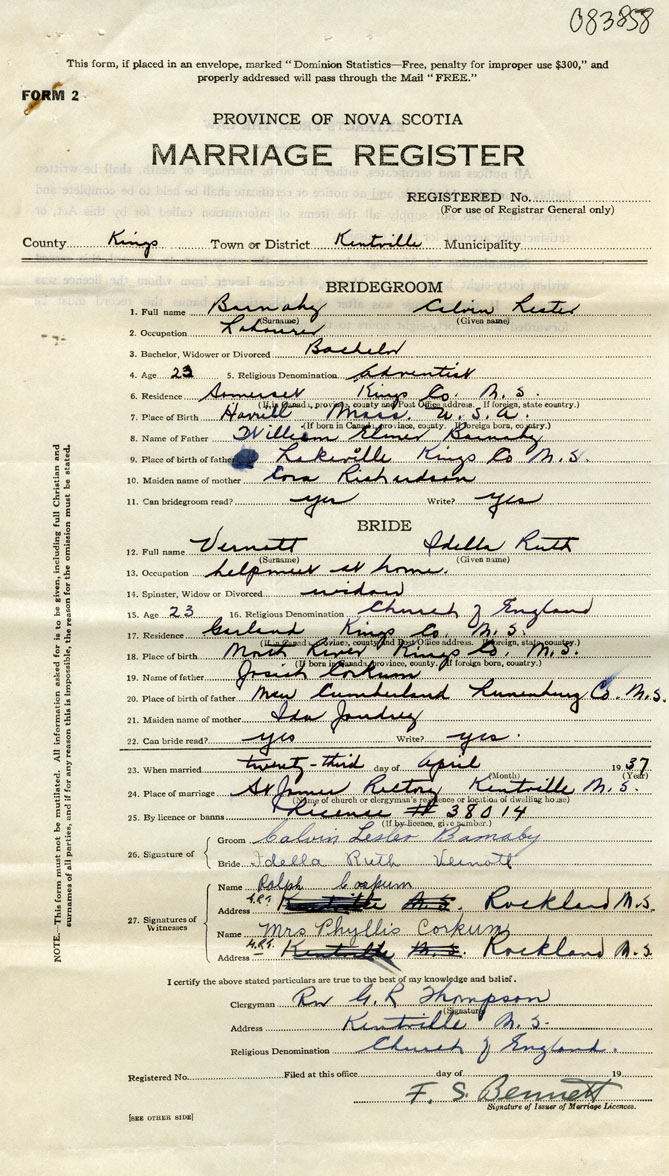 083858
This form, if placed in an envelope, marked "Dominion Statistics—Free, penalty for improper use $300," and
properly addressed will pass through the Mail "FREE."
FORM 2
PROVINCE OF NOVA SCOTIA
MARRIAGE REGISTER
REGISTERED No.
(For use of Registrar General only)
County Kings Town or District Kentville Municipality
BRIDEGROOM
1. Full name Barnaby Calvin Lester
(Surname) (Given name)
2. Occupation Labourer
3. Bachelor, Widower or Divorced Bachelor
4. Age 23 5. Religious Denomination Adventist
6. Residence Somerset Kings Co. N.S.
(If in Canada, province, county and Post Office address. If foreign, state country.)
7. Place of Birth Mass. U.S.A.
(If born in Canada, province, county. If foreign born, country.)
8. Name of Father William Elmer Barnaby
9. Place of birth of father Lakeville Kings Co N.S.
10. Maiden name of mother Cora Richardson
11. Can bridegroom read? yes Write? yes
BRIDE
12. Full name Vernott Idella Ruth
(Surname) (Given name)
13. Occupation helpmeet at home.
14. Spinster, Widow or Divorced widow
15. Age 23 16. Religious Denomination Church of England
17. Residence Garland Kings Co. N.S.
(If in Canada, province, county and Post Office address. If foreign, state country.)
18. Place of birth North River Kings Co. N.S.
(If born in Canada, province, county. If foreign born, country.)
19. Name of father Josiah Corkum
20. Place of birth of father New Cumberland Lunenburg Co. N.S.
21. Maiden name of mother Ida Joudrey
22. Can bride read? yes Write? yes.
23. When married twenty-third day of April 1937
(Month) (Year)
24. Place of marriage St James Rectory Kentville N.S.
(Name of church or clergyman's residence or location of dwelling house)
25. By licence or banns License # 38014
(If by licence, give number.)
26. Signature of
Groom Calvin Lester Barnaby
Bride Idella Ruth Vernott
27. Signatures of Witnesses
Name Ralph Corkum
Address Kentville N.S. Rockland N.S.
Name Mrs Phyllis Corkum
Address Kentville N.S. Rockland N.S
I certify the above stated particulars are true to the best of my knowledge and belief.
Clergyman Rev G. R Thompson
(Signature)
Address Kentville N.S.
Religious Denomination Church of England.
Registered No. Filed at this office day of 19
F. S. Bennett
Signature of Issuer of Marriage Licences.
[SEE OTHER SIDE]
NOTE.—This form must not be mutilated. All information asked for is to be given, including full Christian and
surnames of all parties, and if for any reason this is impossible, the reason for the omission must be stated.